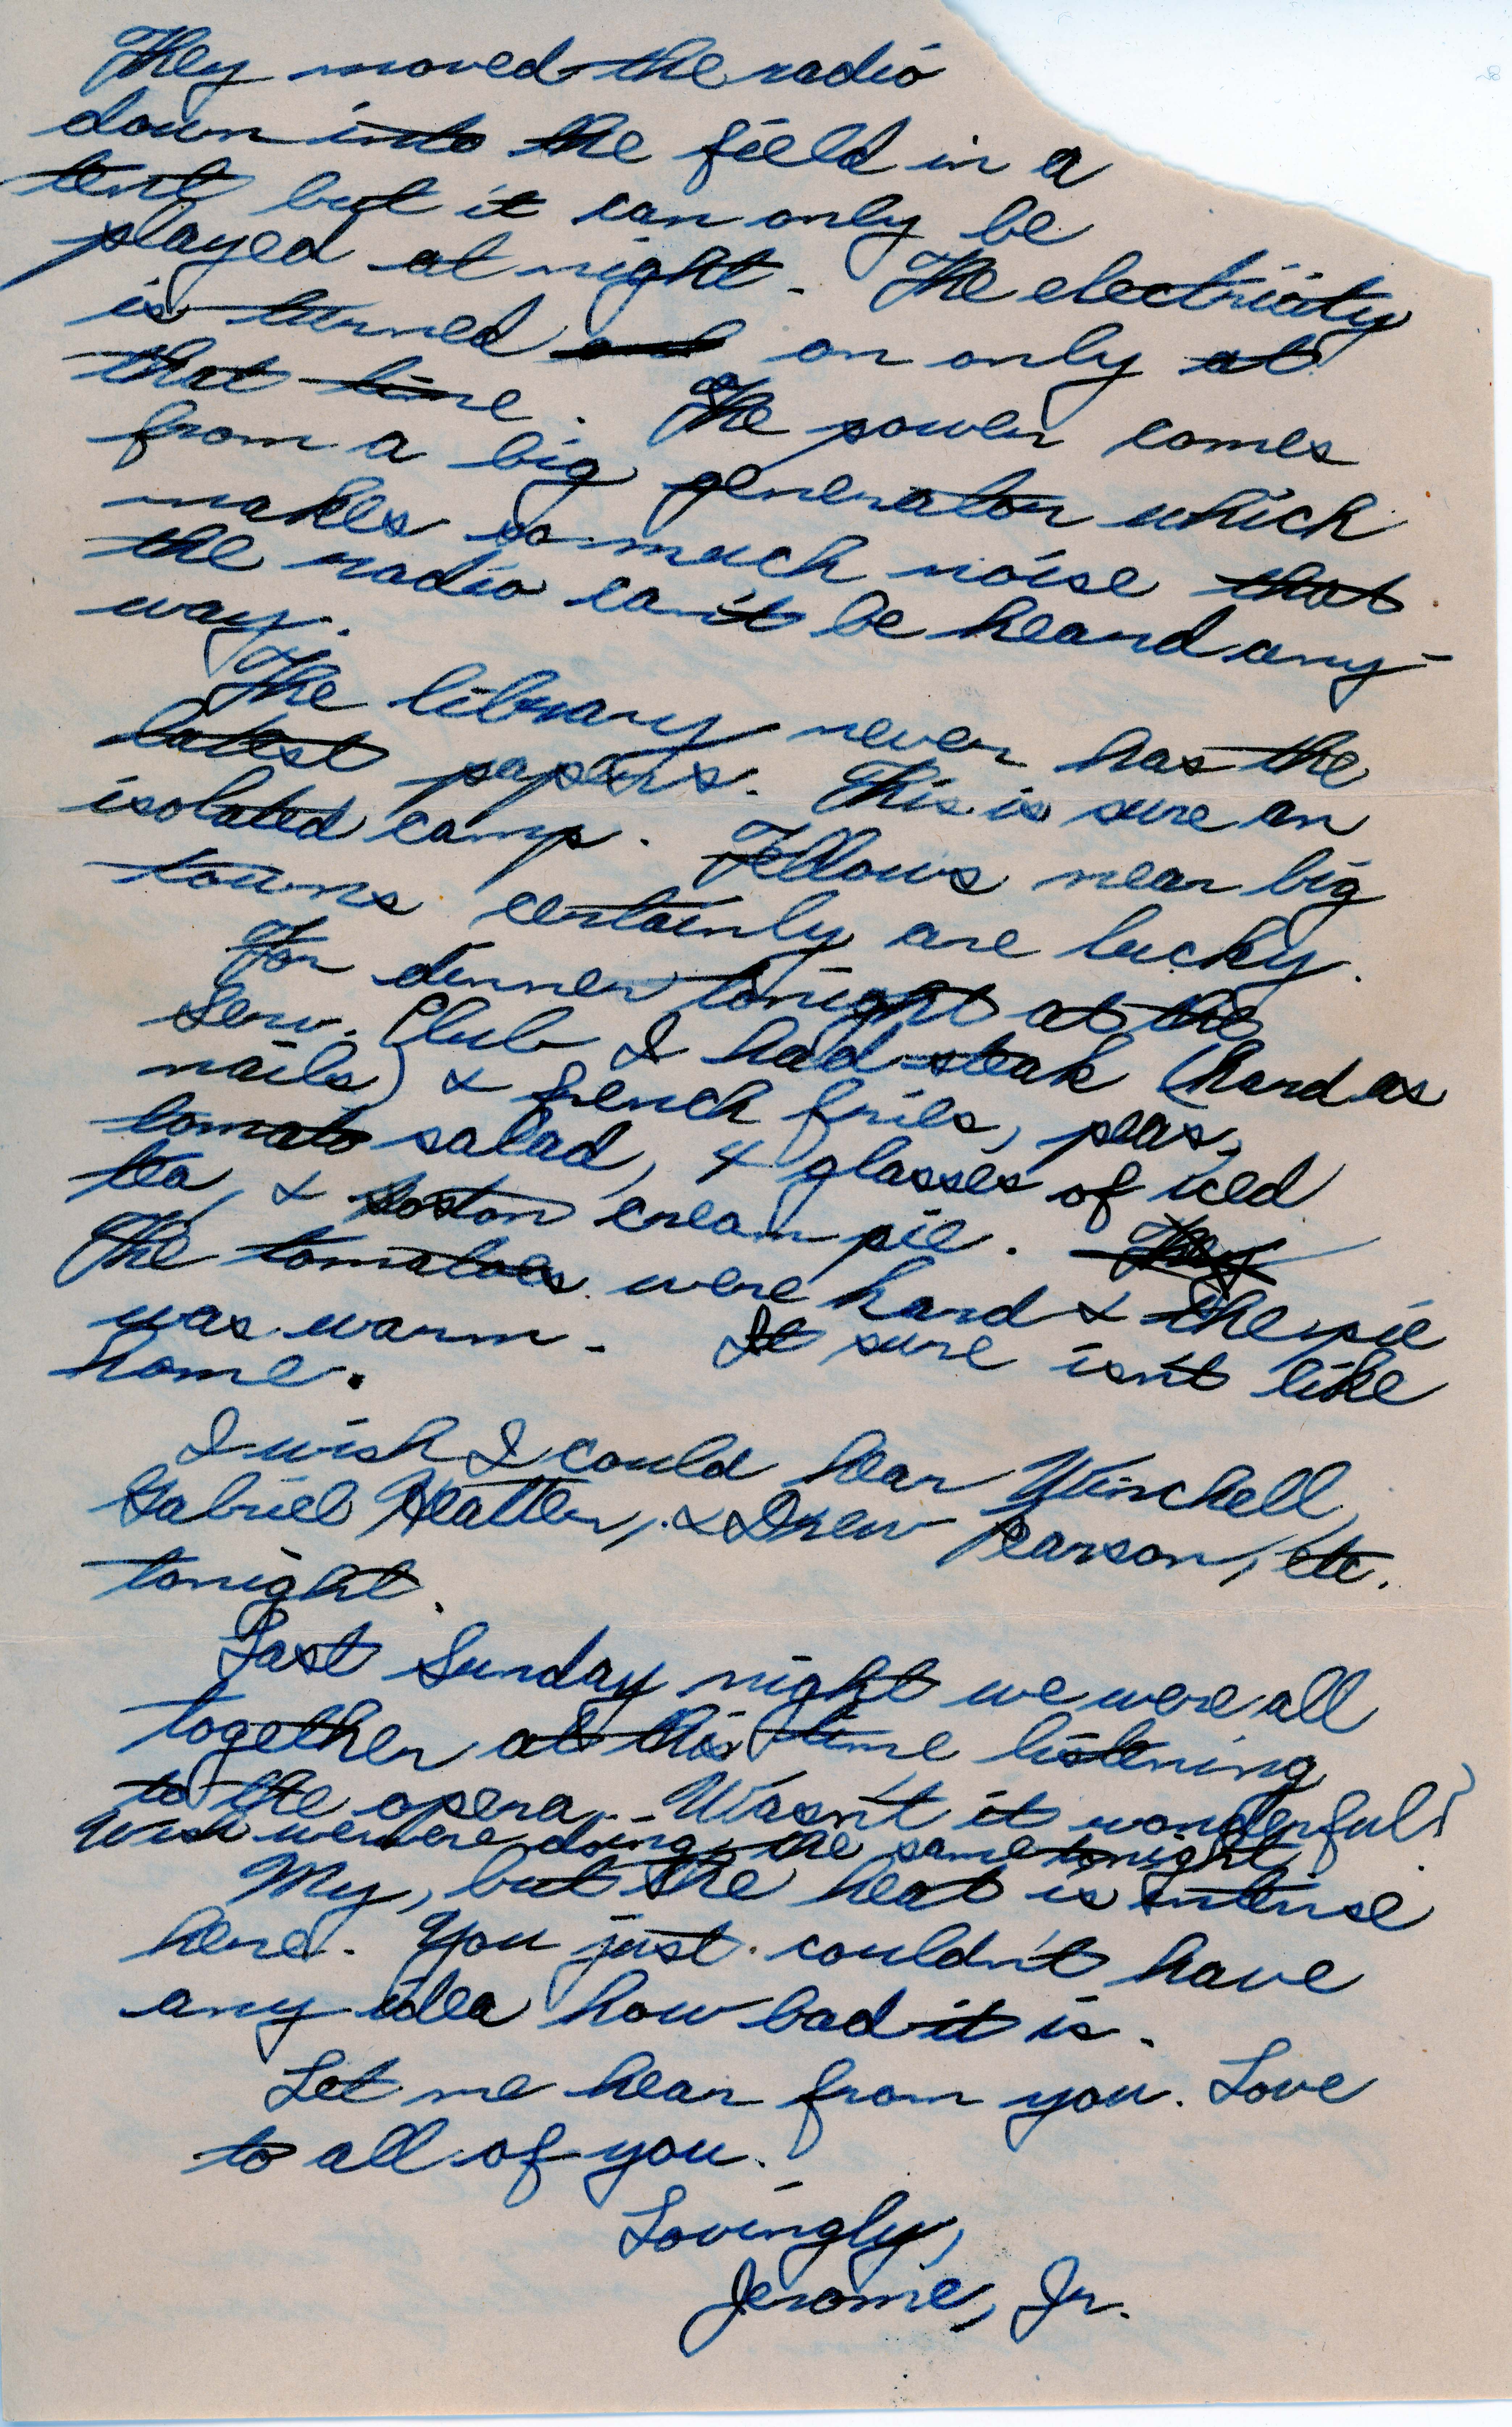 They moved the radio
down into the field in a
tent but it can only be
played at night. The electricity
is turned out on only at
that time. The power comes
from a big generator which
makes so much noise that
the radio can't be heard any-
way.
The library never has the
latest papers. This is sure an
isolated camp. Fellows near big
towns certainly are lucky.
For dinner tonight at the
Serv. Club I had steak (hard as
nails) & french fries, peas,
tomato salad, 4 glasses of iced
tea, & boston cream pie. They
The tomatoes were hard & the pie
was warm. It sure isn't like
home.
I wish I could hear Winchell,
Gabriel Heatter, & Drew Pearson, etc.
tonight.
Last Sunday night we were all
together at this time listening
to the opera. Wasn't it wonderful?
Wish we were doing the same tonight.
My, but the heat is intense
here. You just couldn't have
any idea how bad it is.
Let me hear from you. Love
to all of you.
Lovingly,
Jerome, Jr.